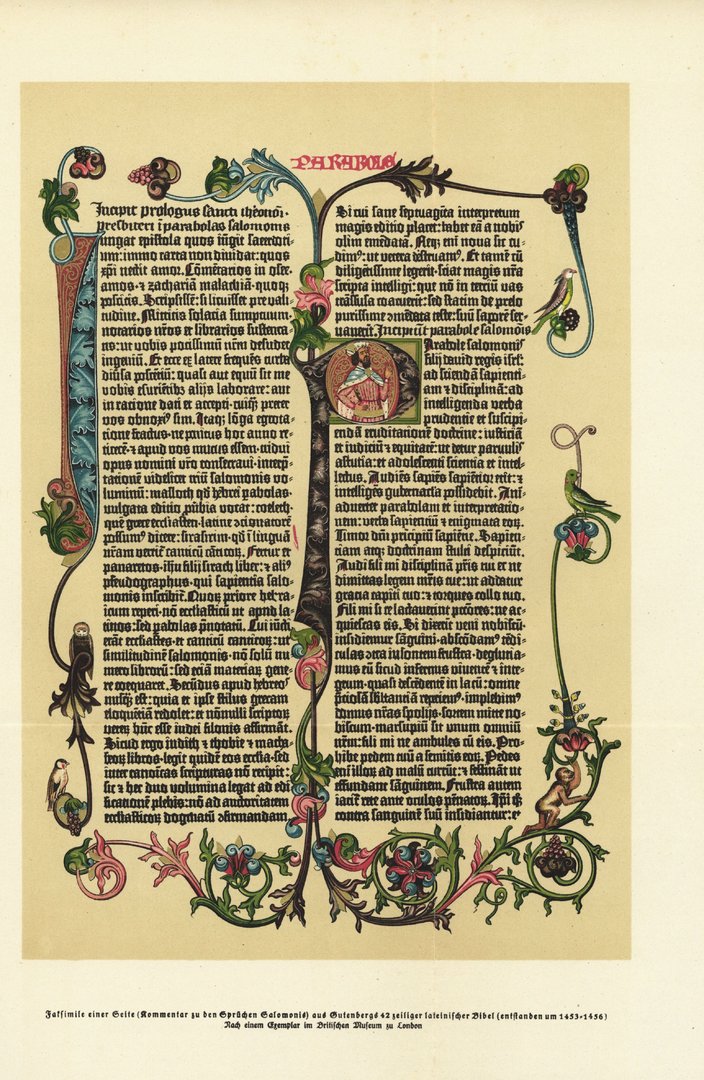 PARABOLE
Incipit prologus sancti iheronimi
presbiteri i parabolas salomonis
Iungat epistola quos iūgit sacerdoti-
um: immo carta non dividat: quos
xp̄i nectit amor. Cōmētarios in osee.
amos. ⁊ zachariā malachiā. quoqꝫ
poscitis. Scripsissē: si licuisset pre vali-
tudine. Mittitis solacia sumptuum.
notarios nr̄os et librarios sustenta-
tis: ut vobis potissimū nr̄m desudet
ingeniū. Et ecce ex latere frequēs turba
diūsa poscētiū: quasi aut equū sit me
vobis esuriētibꝫ alijs laborare: aut
in ratione dati et accepti. cuiqꝫ preter
vos obnoxiꝰ sim. Itaqꝫ lōga egrota-
tione fractus. ne penitus hoc anno re-
ticerē. ⁊ apud vos mutus essem. tridui
opus nomini vr̄o consecravi. interp̄-
tationē videlicet triū salomonis vo-
luminū: masloth qd̄ hebrei pabolas.
vulgata editio ꝓūbia vocat: coeleth.
quē grece ecclesiasten. latine ꝯcionatorē
possumꝰ dicere: sirasirim. qd̄ i linguā
nr̄am vertit̄ canticū cāticoꝝ. Fertur et
panaretos. ihū filij sirach liber: ⁊ aliꝰ
pseudographus. qui sapientia salo-
monis inscribit̄. Quoꝝ priorē hebra-
icum reperi. nō ecclesiasticū ut apud la-
tinos: sed pabolas p̄notatū. Cui iūcti
erāt ecclesiastes. et canticū canticoꝝ: ut
similitudinē salomonis. nō solū nu-
mero librorū: sed etiā materiaꝝ gene-
re coequaret. Secūdus apud hebreos
nusqꝫ est: quia et ipse stilus grecam
eloquētiā redolet: et nōnulli scriptoꝝ
veteꝝ hūc esse iudei filonis affirmāt.
Sicud ergo iudith ⁊ thobie ⁊ macha-
beoꝝ libros. legit quidē eos ecclīa. sed
inter canonicas scripturas nō recipit:
sic ⁊ hec duo volumina legat ad edi-
ficationē plebis: nō ad auctoritatem
ecclesiasticoꝝ dogmatū ꝯfirmandam.
Si cui sane septuaginta interpretum
magis editio placet: habet eā a nobis
olim emēdatā. Neqꝫ eni nova sic cu-
dimꝰ: ut vetera destruamꝰ. Et tamē cū
diligētissime legerit. sciat magis nr̄a
scripta intelligi: que nō in terciū vas
trāsfusa coacuerīt: sed statim de prelo
purissime ꝯmēdata teste: suū saporē ser-
vaverīt. Incipiūt parabole salomōis
Parabole salomonis
filij david regis isrl̄:
ad sciendā sapienti-
am ⁊ disciplinā: ad
intelligenda verba
prudentie et suscipi-
endā eruditationē doctrine: iusticiā
et iudiciū ⁊ equitatē: ut detur parvulis
astutia: et adolescenti scientia et intel-
lectus. Audiēs sapiēs sapiētior erit: ⁊
intelligēs gubernacla possidebit. Ani-
advertet parabolam et interpretatio-
nem: verba sapientiū ⁊ enigmata eoꝝ.
Timor dn̄i principiū sapiētie. Sapien-
tiam atqꝫ doctrinam stulti despiciūt.
Audi fili mi disciplinā pr̄is tui et ne
dimittas legem mr̄is tue: ut addatur
gracia capiti tuo: ⁊ torques collo tuo.
Fili mi si te lactaverint pctōres: ne ac-
quiescas eis. Si dixerīt veni nobiscū.
insidiemur sāguini. abscōdamꝰ tēdi-
culas cōtra insontem frustra. deglutia-
mus eū sicud infernus viventē ⁊ inte-
grum. quasi descēdentē in lacū: omnē
p̄ciosā sb̄stanciā reperiemꝰ. implebimꝰ
domus nr̄as spolijs. sortem mitte no-
biscum. marsupiū sit unum omniū
nr̄m: fili mi ne ambules cū eis. Pro-
hibe pedem tuū a semitis eoꝝ. Pedes
eni illoꝝ ad malū currūt: ⁊ festināt ut
effundant sāguinem. Frustra autem
iacit̄ rete ante oculos pēnatoꝝ. Ip̄i qꝫ
contra sanguinē suū insidiantur: et
Faksimile einer Seite (Kommentar zu den Sprüchen Salomonis) aus Gutenbergs 42 zeiliger lateinischer Bibel (entstanden um 1453-1456)
Nach einem Exemplar im Britischen Museum zu London